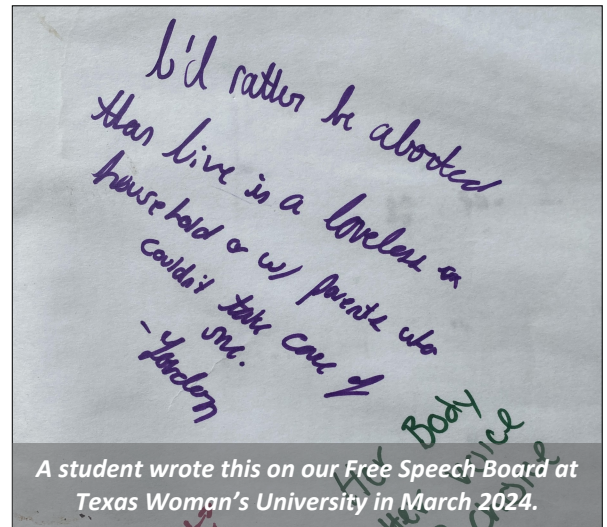 I'd rather be aborted
than live in a loveless
household or w/ parents who
couldn't take care of
me.
-Jordan
Her Body
A student wrote this on our Free Speech Board at
Texas Woman's University in March 2024.